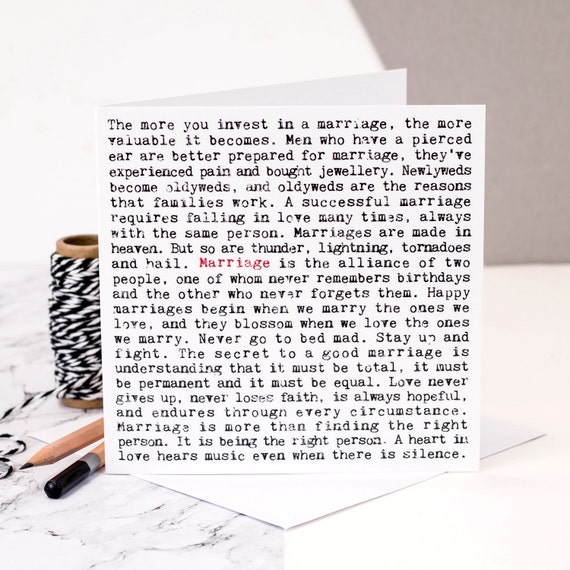 The more you invest in a marriage, the more
valuable it becomes. Men who have a pierced
ear are better prepared for marriage, they've
experienced pain and bought jewellery. Newlyweds
become oldyweds, and oldyweds are the reasons
that families work. A successful marriage
requires falling in love many times, always
with the same person. Marriages are made in
heaven. But so are thunder, lightning, tornadoes
and hail. Marriage is the alliance of two
people, one of whom never remembers birthdays
and the other who never forgets them. Happy
marriages begin when we marry the ones we
love, and they blossom when we love the ones
we marry. Never go to bed mad. Stay up and
fight. The secret to a good marriage is
understanding that it must be total, it must
be permanent and it must be equal. Love never
gives up, never loses faith, is always hopeful,
and endures through every circumstance.
Marriage is more than finding the right
person. It is being the right person. A heart in
love hears music even when there is silence.